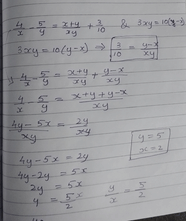 4/x - 5/y = x+y/xy + 3/10 & 3xy = 10(y-x)
3xy = 10(y-x) ⇒ 3/10 = y-x/xy
4/x - 5/y = x+y/xy + y-x/xy
4/x - 5/y = x+y+y-x/xy
4y-5x/xy = 2y/xy
y=5
x=2
4y-5x = 2y
4y-2y = 5x
2y = 5x
y = 5/2 x y/x = 5/2